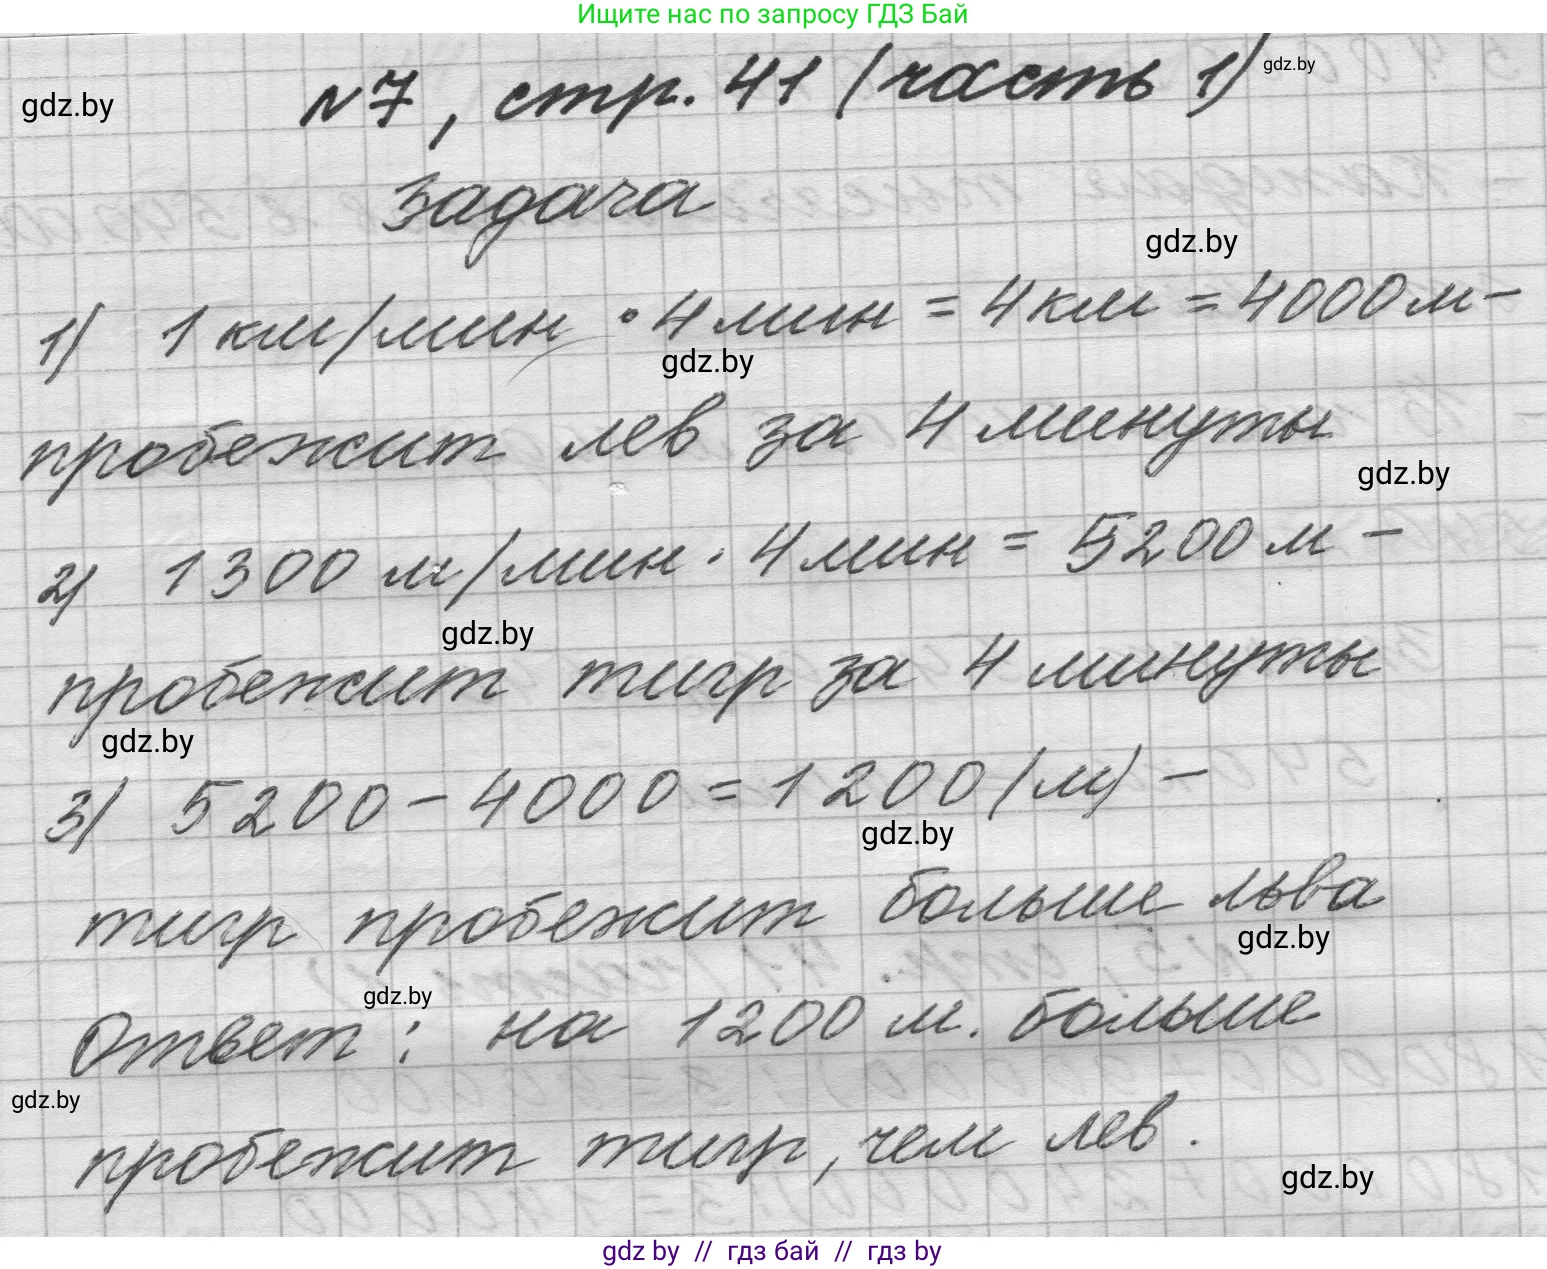 Ищите нас по запросу ГДЗ Бай
№7, стр. 41 (часть 1)
gdz.by
gdz.by
Задача
gdz.by
1) 1 км/мин · 4 мин = 4 км = 4000 м –
gdz.by
пробежит лев за 4 минуты
gdz.by
2) 1300 м/мин · 4 мин = 5200 м –
gdz.by
пробежит тигр за 4 минуты
gdz.by
3) 5200 – 4000 = 1200 (м) –
gdz.by
тигр пробежит больше льва
gdz.by
gdz.by
Ответ: на 1200 м. больше
gdz.by
пробежит тигр, чем лев.
gdz.by
gdz by // гдз бай // гдз by